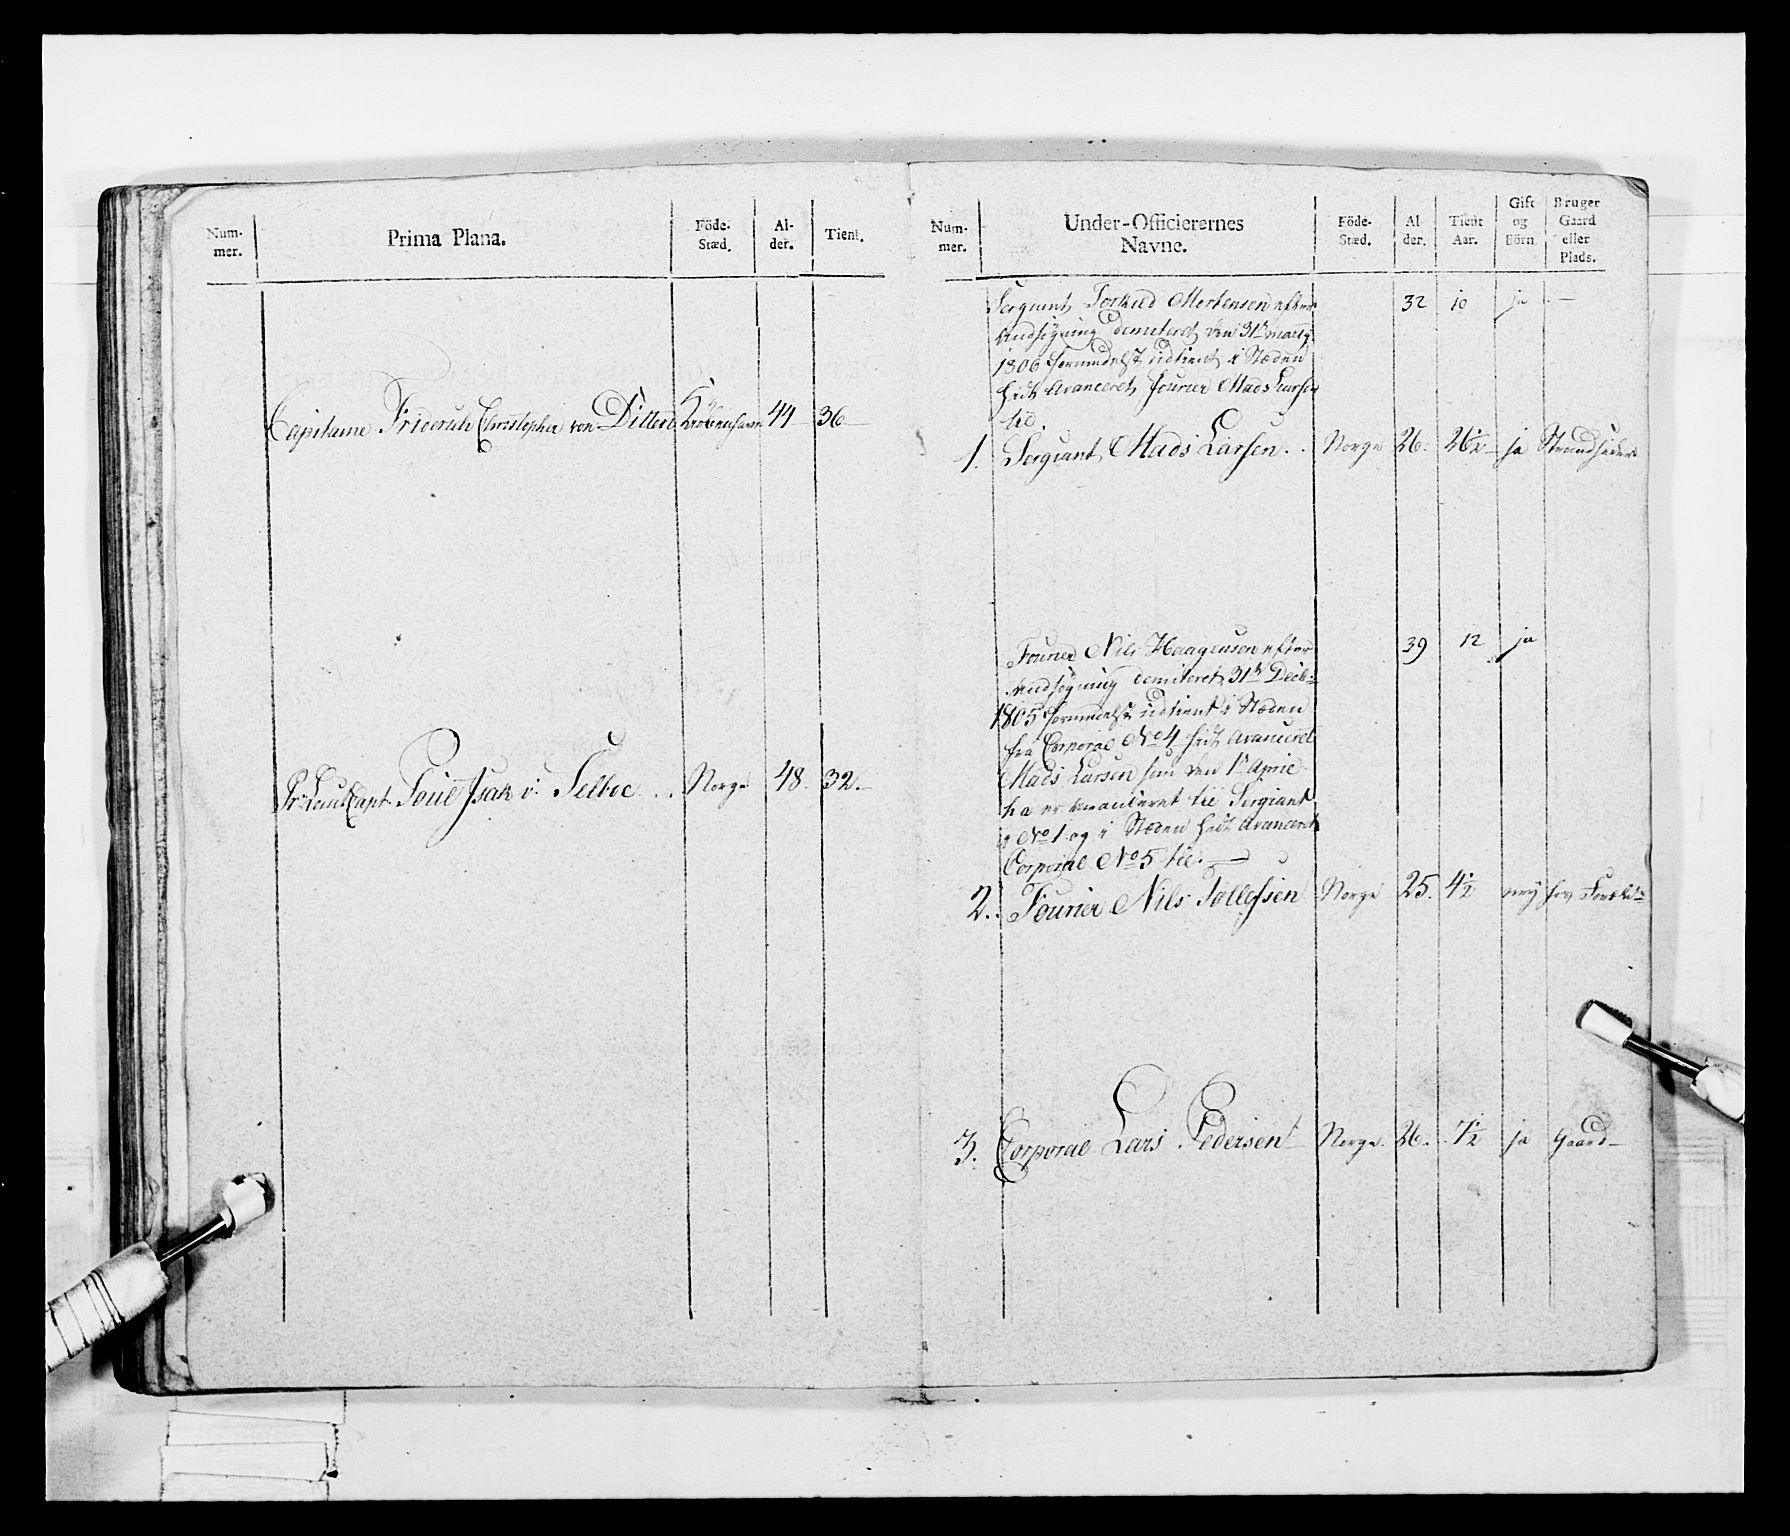 Num-
mer.
Prima Plana.
Föde-
Stæd.
Al-
der.
Tient.
Capitaine Friderich Christopher von Ditten Kiöbenhavn 44 36
Pr: Leut Capt: Poul Isak v: Selboe Norge 48 32.
Num-
mer.
Under-Officierernes
Navne.
Föde-
Stæd.
Al-
der.
Tient
Aar.
Gift
og
Börn.
Bruger
Gaard
eller
Plads.
Sergiant Torkild Mortensen efter 32 10 ja —
Ansögning demiteret den 31te Martij
1806 formedelst udtient i Stæden
hidt Avanceret Fourier Mads Larsen
til
1. Sergiant Mads Larsen. Norge 26. 26½ ja Strandsider
Fourier Nils Haagensen efter 39 12 ja
Ansögning demiteret 31te Decb:
1805 formedelst udtient i Stæden
fra Corporal No 4 hidt Avanceret
Mads Larsen som den 1te April
h: a: er avanceret til Sergiant
No 1 og i Stæden hidt Avanceret
Corporal No 5 til. —
2. Fourier Nils Tollefsen Norge 25. 4½ nej hos Foreld:
3. Corporal Lars Pedersen Norge. 26. 7½ ja Gaard